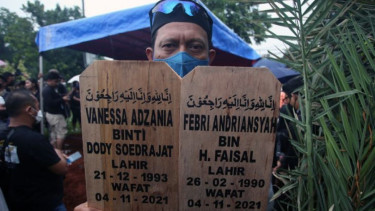 إنا لله وإنا إليه راجعون
VANESSA ADZANIA
BINTI
DODY SOEDRAJAT
LAHIR
21 - 12 - 1993
WAFAT
04 - 11 - 2021
إنا لله وإنا إليه راجعون
FEBRI ANDRIANSYAH
BIN
H. FAISAL
LAHIR
26 - 02 - 1990
WAFAT
04 - 11 - 2021